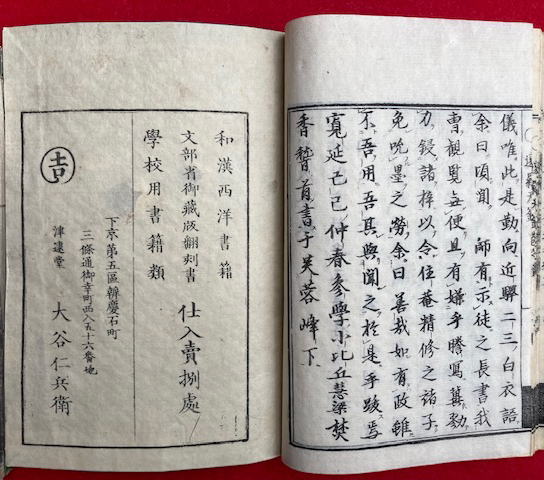 儀唯此是勤向近聨二三白衣語
余曰頃聞 師有示徒之長書我
曹観覧無便且有嫌乎謄寫冀勠
力鋟諸梓以令住菴精修之諸子
免吮墨之勞余曰善哉如有政雖
不吾用吾其與聞之於是乎跋焉
寛延己巳仲春参學小比丘慧梁焚
香稽首書于芙蓉峰下
和漢西洋書籍
文部省御藏版翻刻書
學校用書籍類
仕入賣捌處
下京第五區辨慶石町
三條通御幸町西入五十六番地
津逮堂 大谷仁兵衛
吉